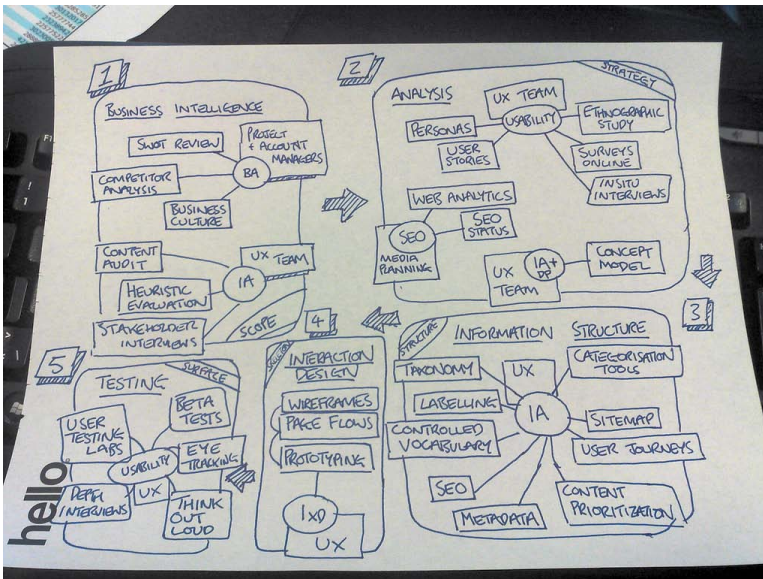 1
BUSINESS INTELLIGENCE
SWOT REVIEW
PROJECT
+ ACCOUNT
MANAGERS
COMPETITOR
ANALYSIS
BA
BUSINESS
CULTURE
CONTENT
AUDIT
UX TEAM
IA
HEURISTIC
EVALUATION
STAKEHOLDER
INTERVIEWS
SCOPE
2
STRATEGY
ANALYSIS
UX TEAM
USABILITY
ETHNOGRAPHIC
STUDY
PERSONAS
USER
STORIES
SURVEYS
ONLINE
INSITU
INTERVIEWS
WEB ANALYTICS
SEO
STATUS
SEO
MEDIA
PLANNING
UX
TEAM
IA+
DP
CONCEPT
MODEL
3
STRUCTURE
INFORMATION STRUCTURE
TAXONOMY
UX
CATEGORISATION
TOOLS
LABELLING
IA
SITEMAP
CONTROLLED
VOCABULARY
USER JOURNEYS
SEO
METADATA
CONTENT
PRIORITIZATION
4
INTERACTION
DESIGN
WIREFRAMES
PAGE FLOWS
PROTOTYPING
IXD
UX
5
SURFACE
TESTING
USER
TESTING
LABS
BETA
TESTS
USABILITY
EYE
TRACKING
DEPTH
INTERVIEWS
UX
THINK
OUT
LOUD
hello.